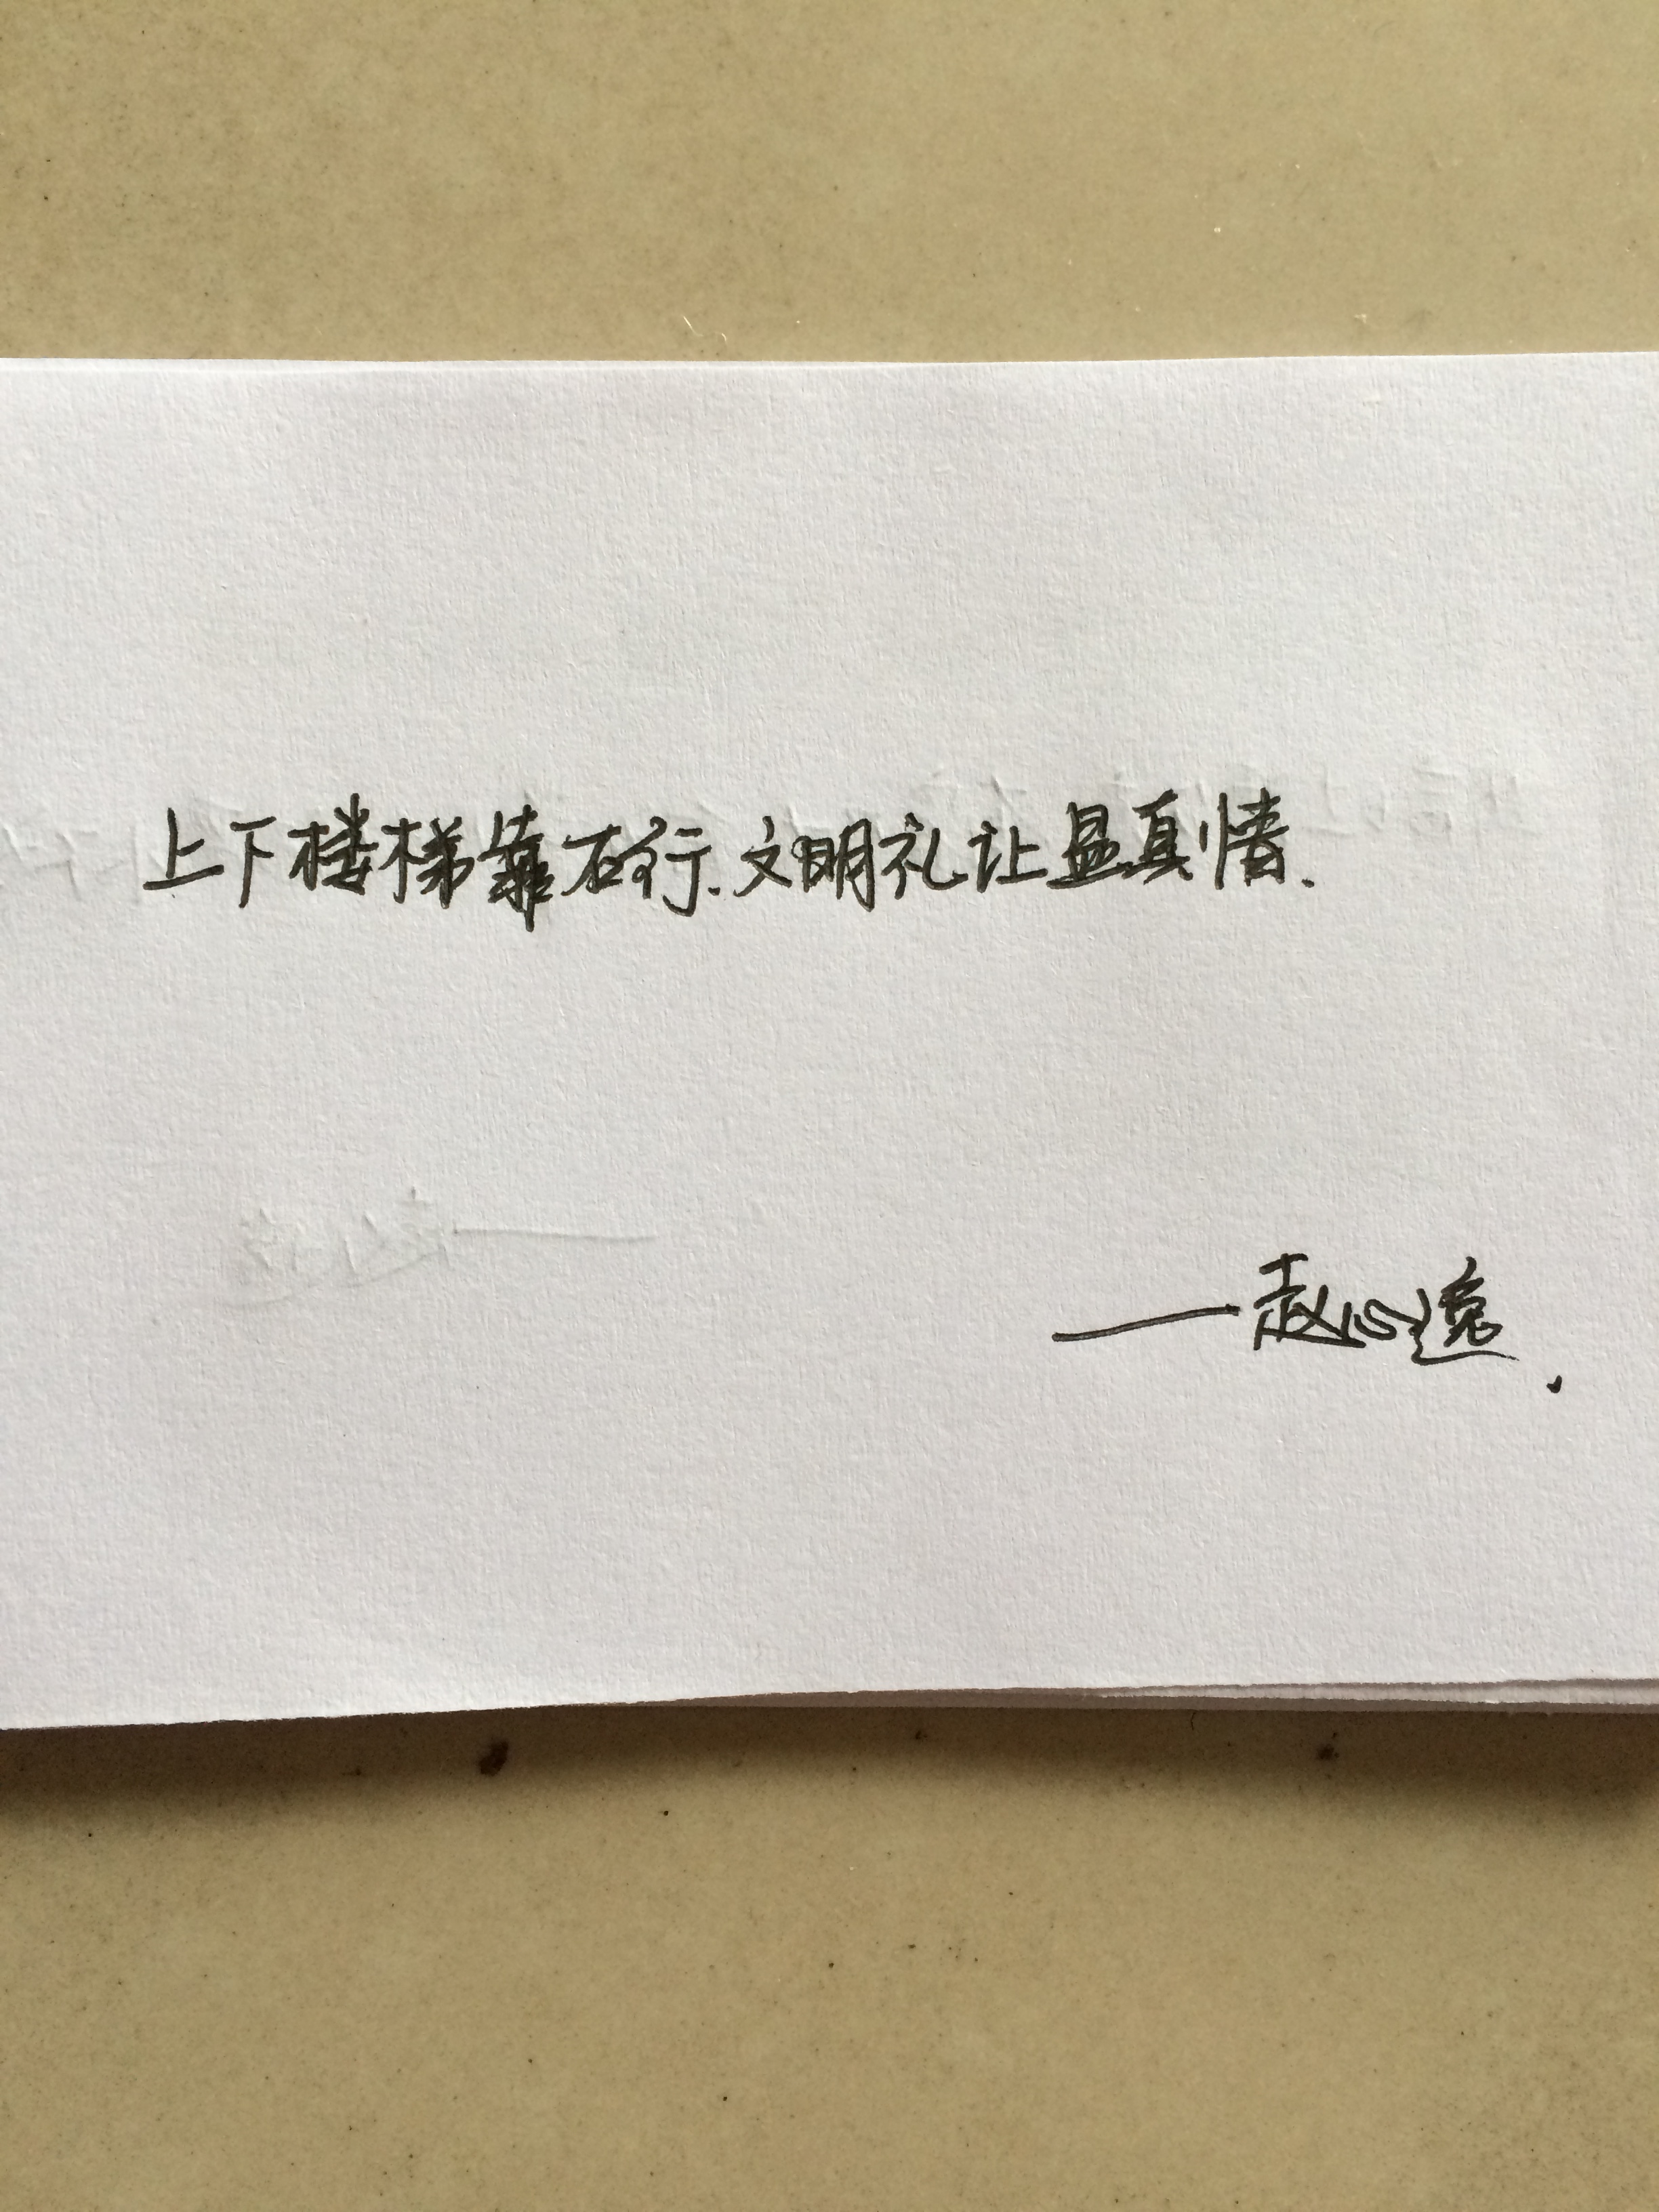 上下楼梯靠右行.文明礼让显真情.
——赵心逸.